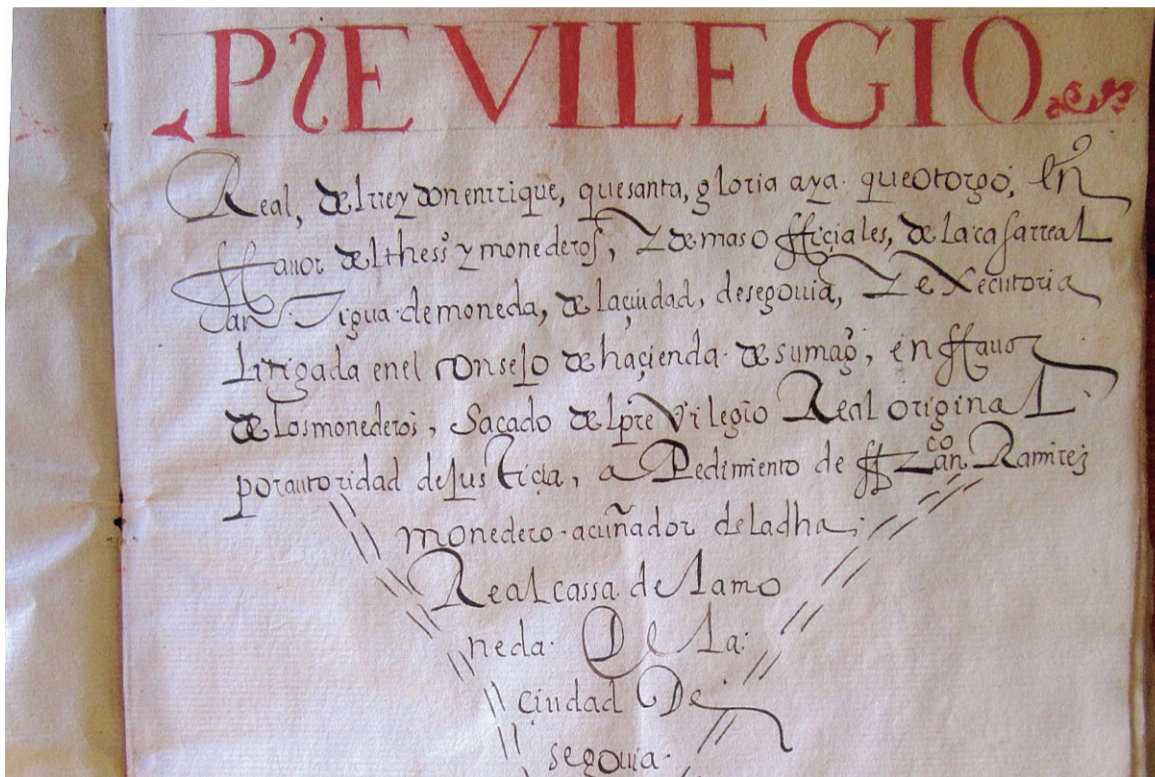 PREVILEGIO
Real, del rrey don enrrique, que santa, gloria aya. que otorgo, En
ffauor del thessº y monederos, Y de mas officiales, de la casa rreal
an Tigua de moneda, de la çiudad, de segouia, Y e Xecutoria
Litigada en el Consejo de haçienda. de su magᵈ, en ffauor
de Los monederos, Sacado del preVilegio Real original
por autoridad de JusTiçia, a Pedimiento de ffranᶜᵒ Ramirez
monedero. acuñador de la dha
Real cassa. de la mo
neda. De La.
çiudad De
segouia.